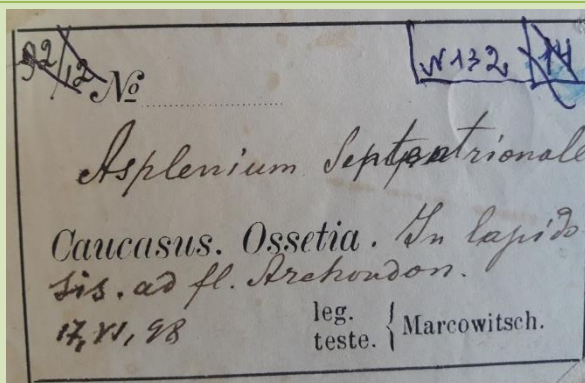 92/12 № N 132 14
Asplenium Septentrionale
Caucasus. Ossetia. In lapido
sis. ad fl. Archondon.
17, VI, 98 leg.
teste. { Marcowitsch.